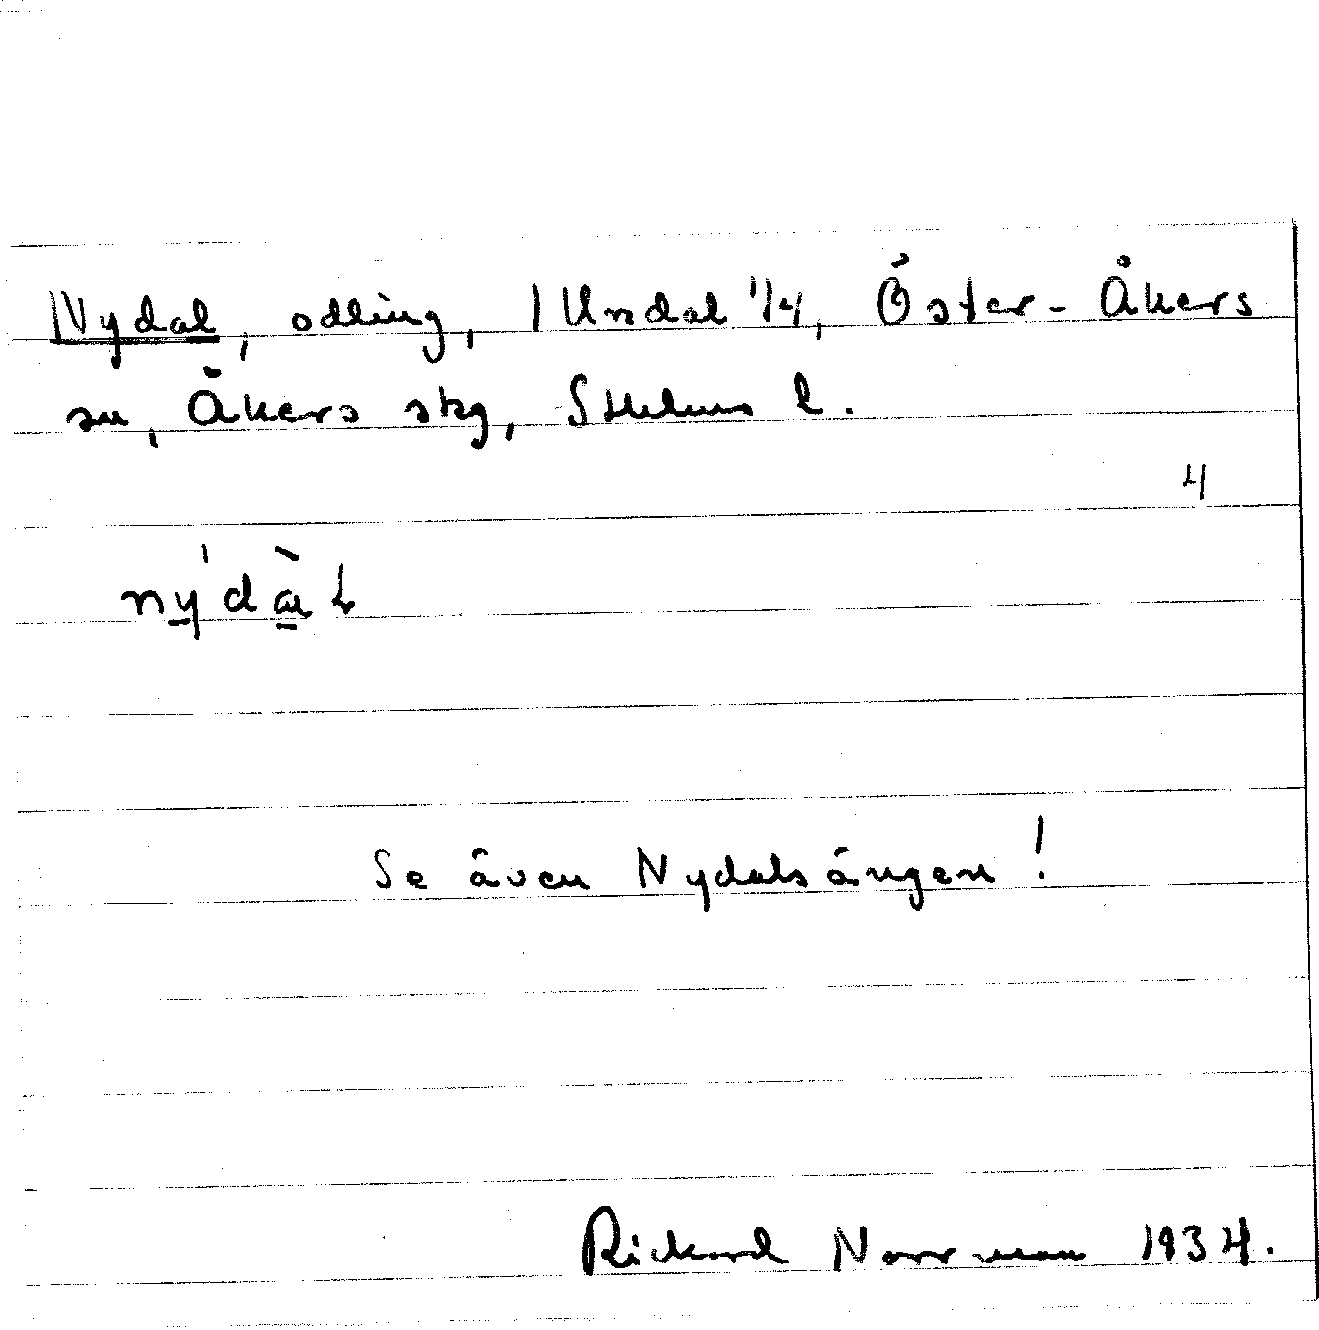 Nydal, odling, 1 Undal 1/4, Öster-Åkers
sn, Åkers skg, Sthlms l.
4
ný̱dà̱ɫ
Se även Nydalsängen!
Rickard Norrman 1934.